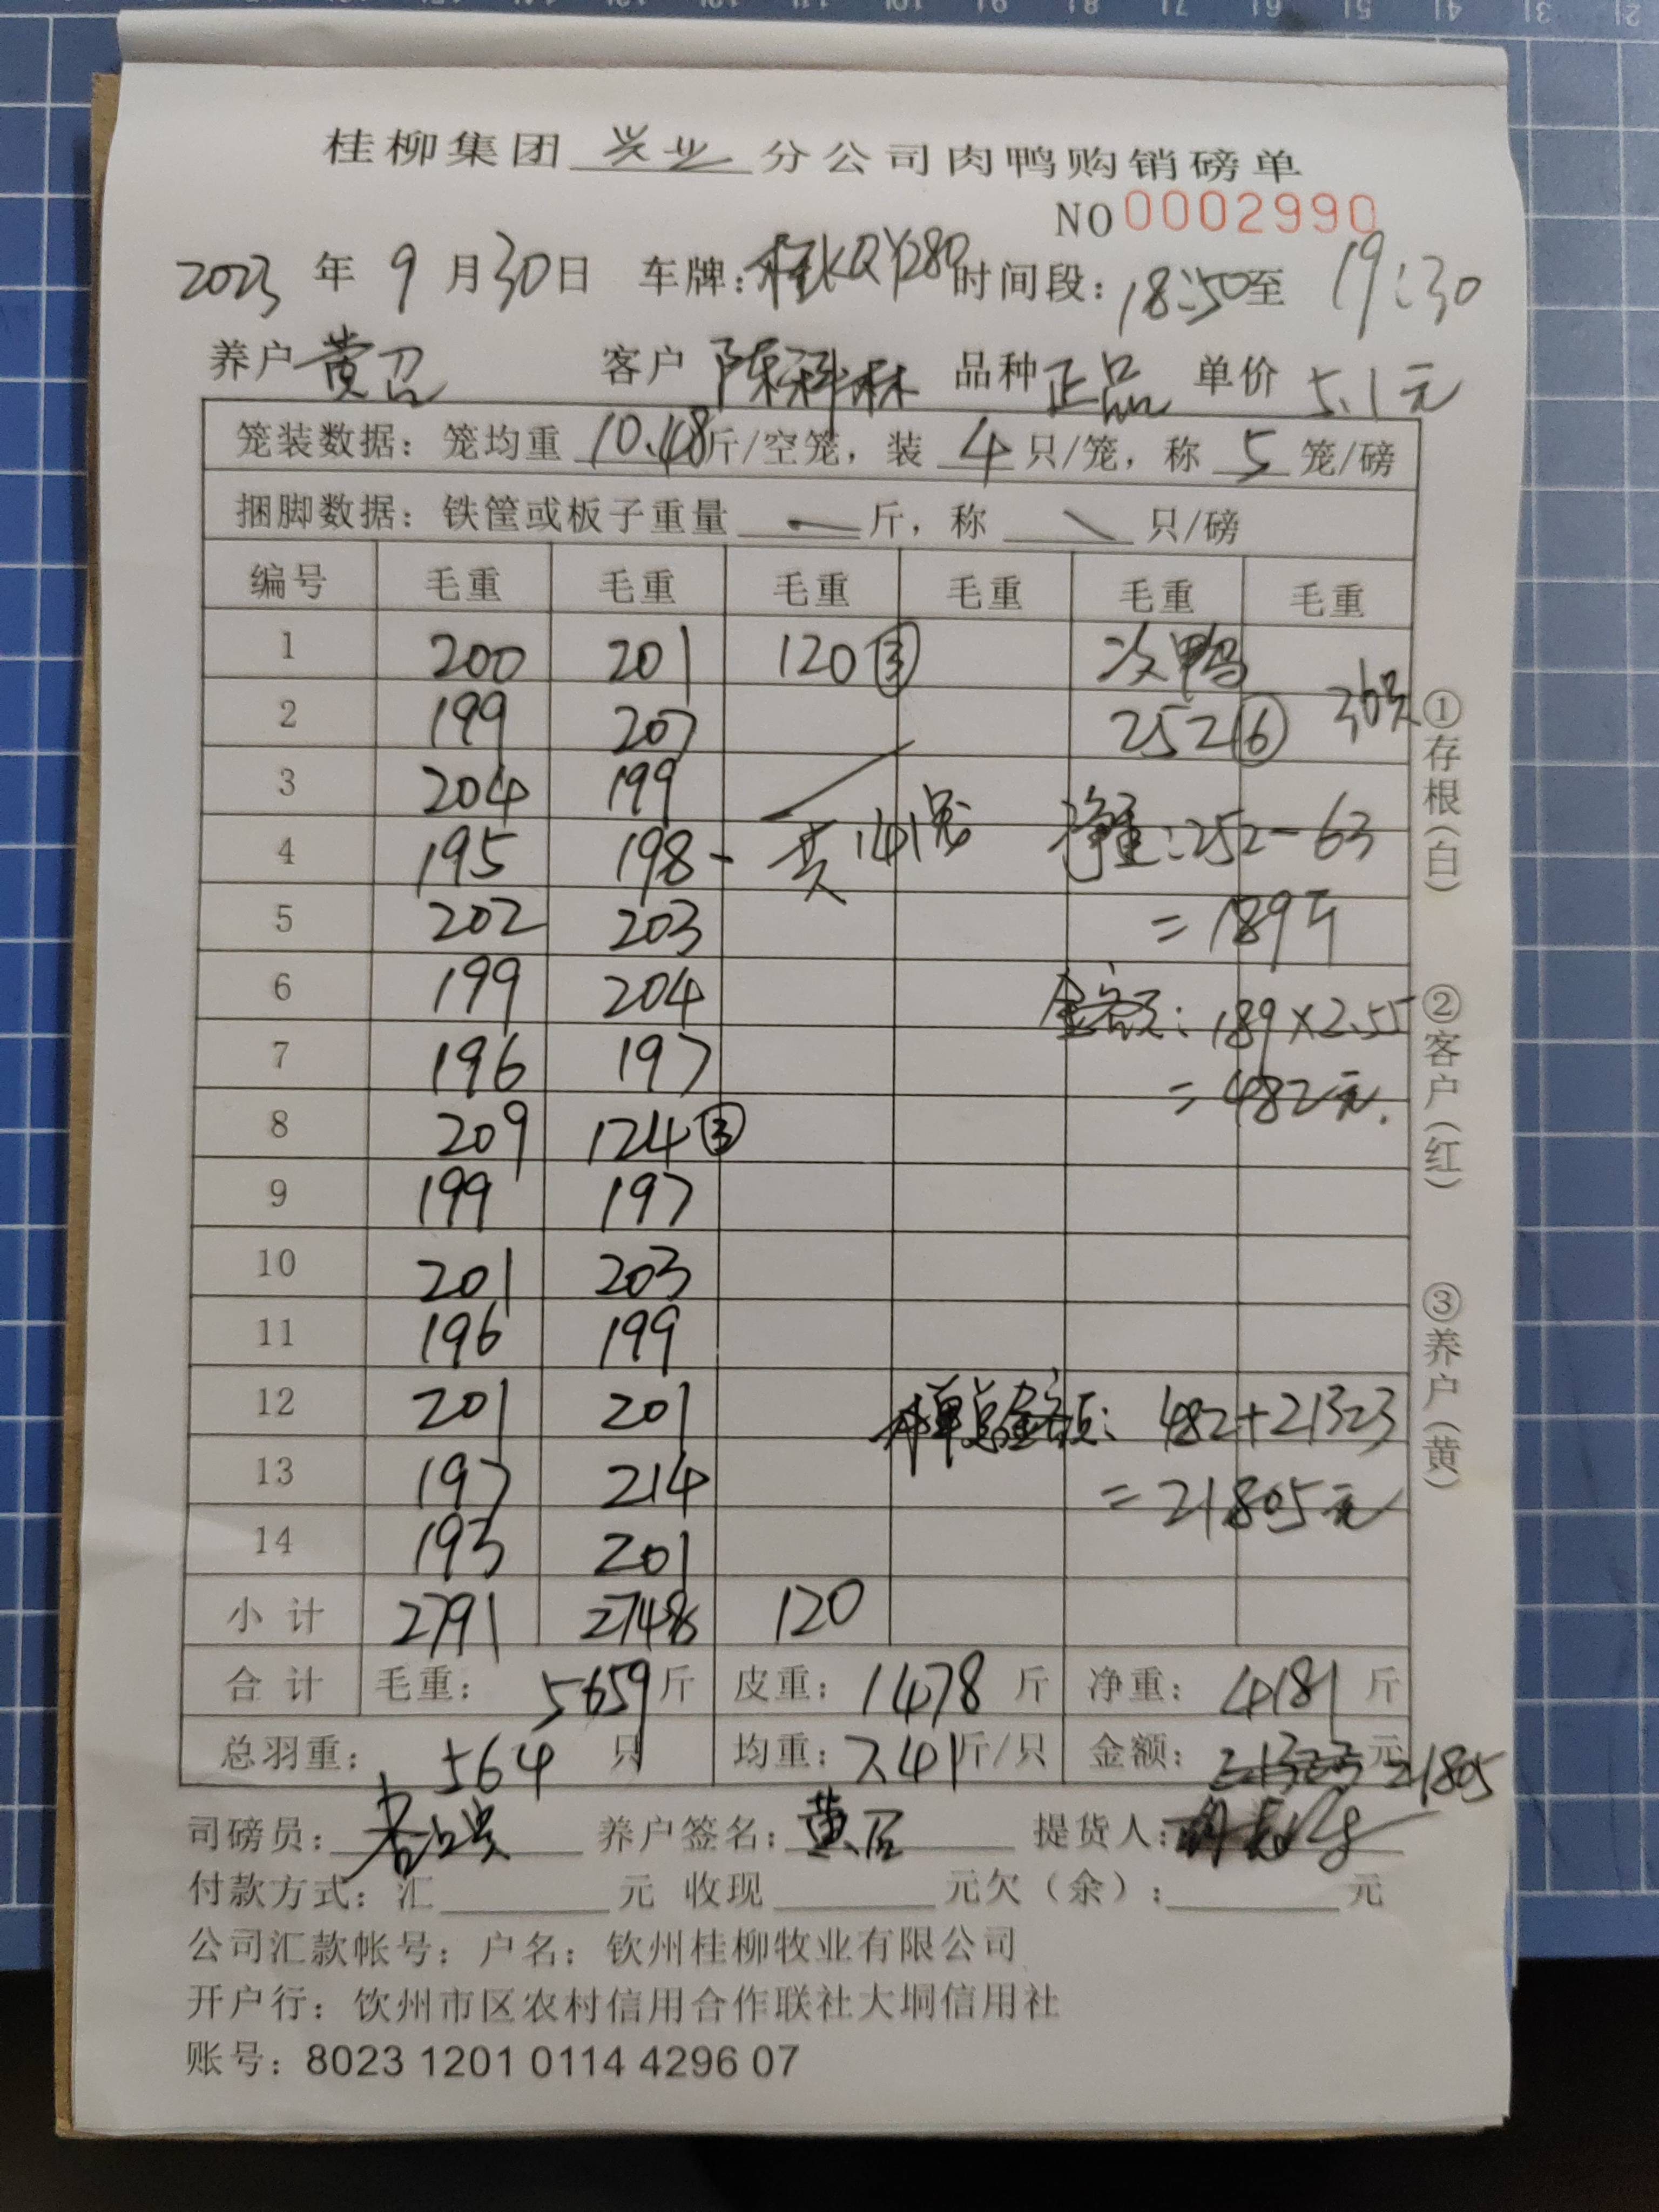 桂柳集团 兴业 分公司肉鸭购销磅单
NO 0002990
2023 年 9 月 30 日 车牌：桂KQY280 时间段：18:50 至 19:30
养户 黄召 客户 陈科林 品种 正品 单价 5.1元
笼装数据：笼均重 10.48 斤/空笼，装 4 只/笼，称 5 笼/磅
捆脚数据：铁筐或板子重量 — 斤，称 \ 只/磅
编号 毛重 毛重 毛重 毛重 毛重 毛重
1 200 201 120③ 次鸭
2 199 207 252⑥ 36只
3 204 199
4 195 198 - 共141笼 净重：252-63
5 202 203 =189斤
6 199 204 金额：189×2.55
7 196 197 =482元.
8 209 124③
9 199 197
10 201 203
11 196 199
12 201 201 本单总金额：482+21323
13 197 214 =21805元
14 193 201
小计 2791 2748 120
合计 毛重：5659 斤 皮重：1478 斤 净重：4181 斤
总羽重：564 只 均重：7.41 斤/只 金额：21323 元 21805
司磅员： 养户签名：黄召 提货人：
付款方式：汇 元 收现 元欠（余）： 元
公司汇款帐号：户名：钦州桂柳牧业有限公司
开户行：饮州市区农村信用合作联社大垌信用社
账号：8023 1201 0114 4296 07
①存根（白）
②客户（红）
③养户（黄）